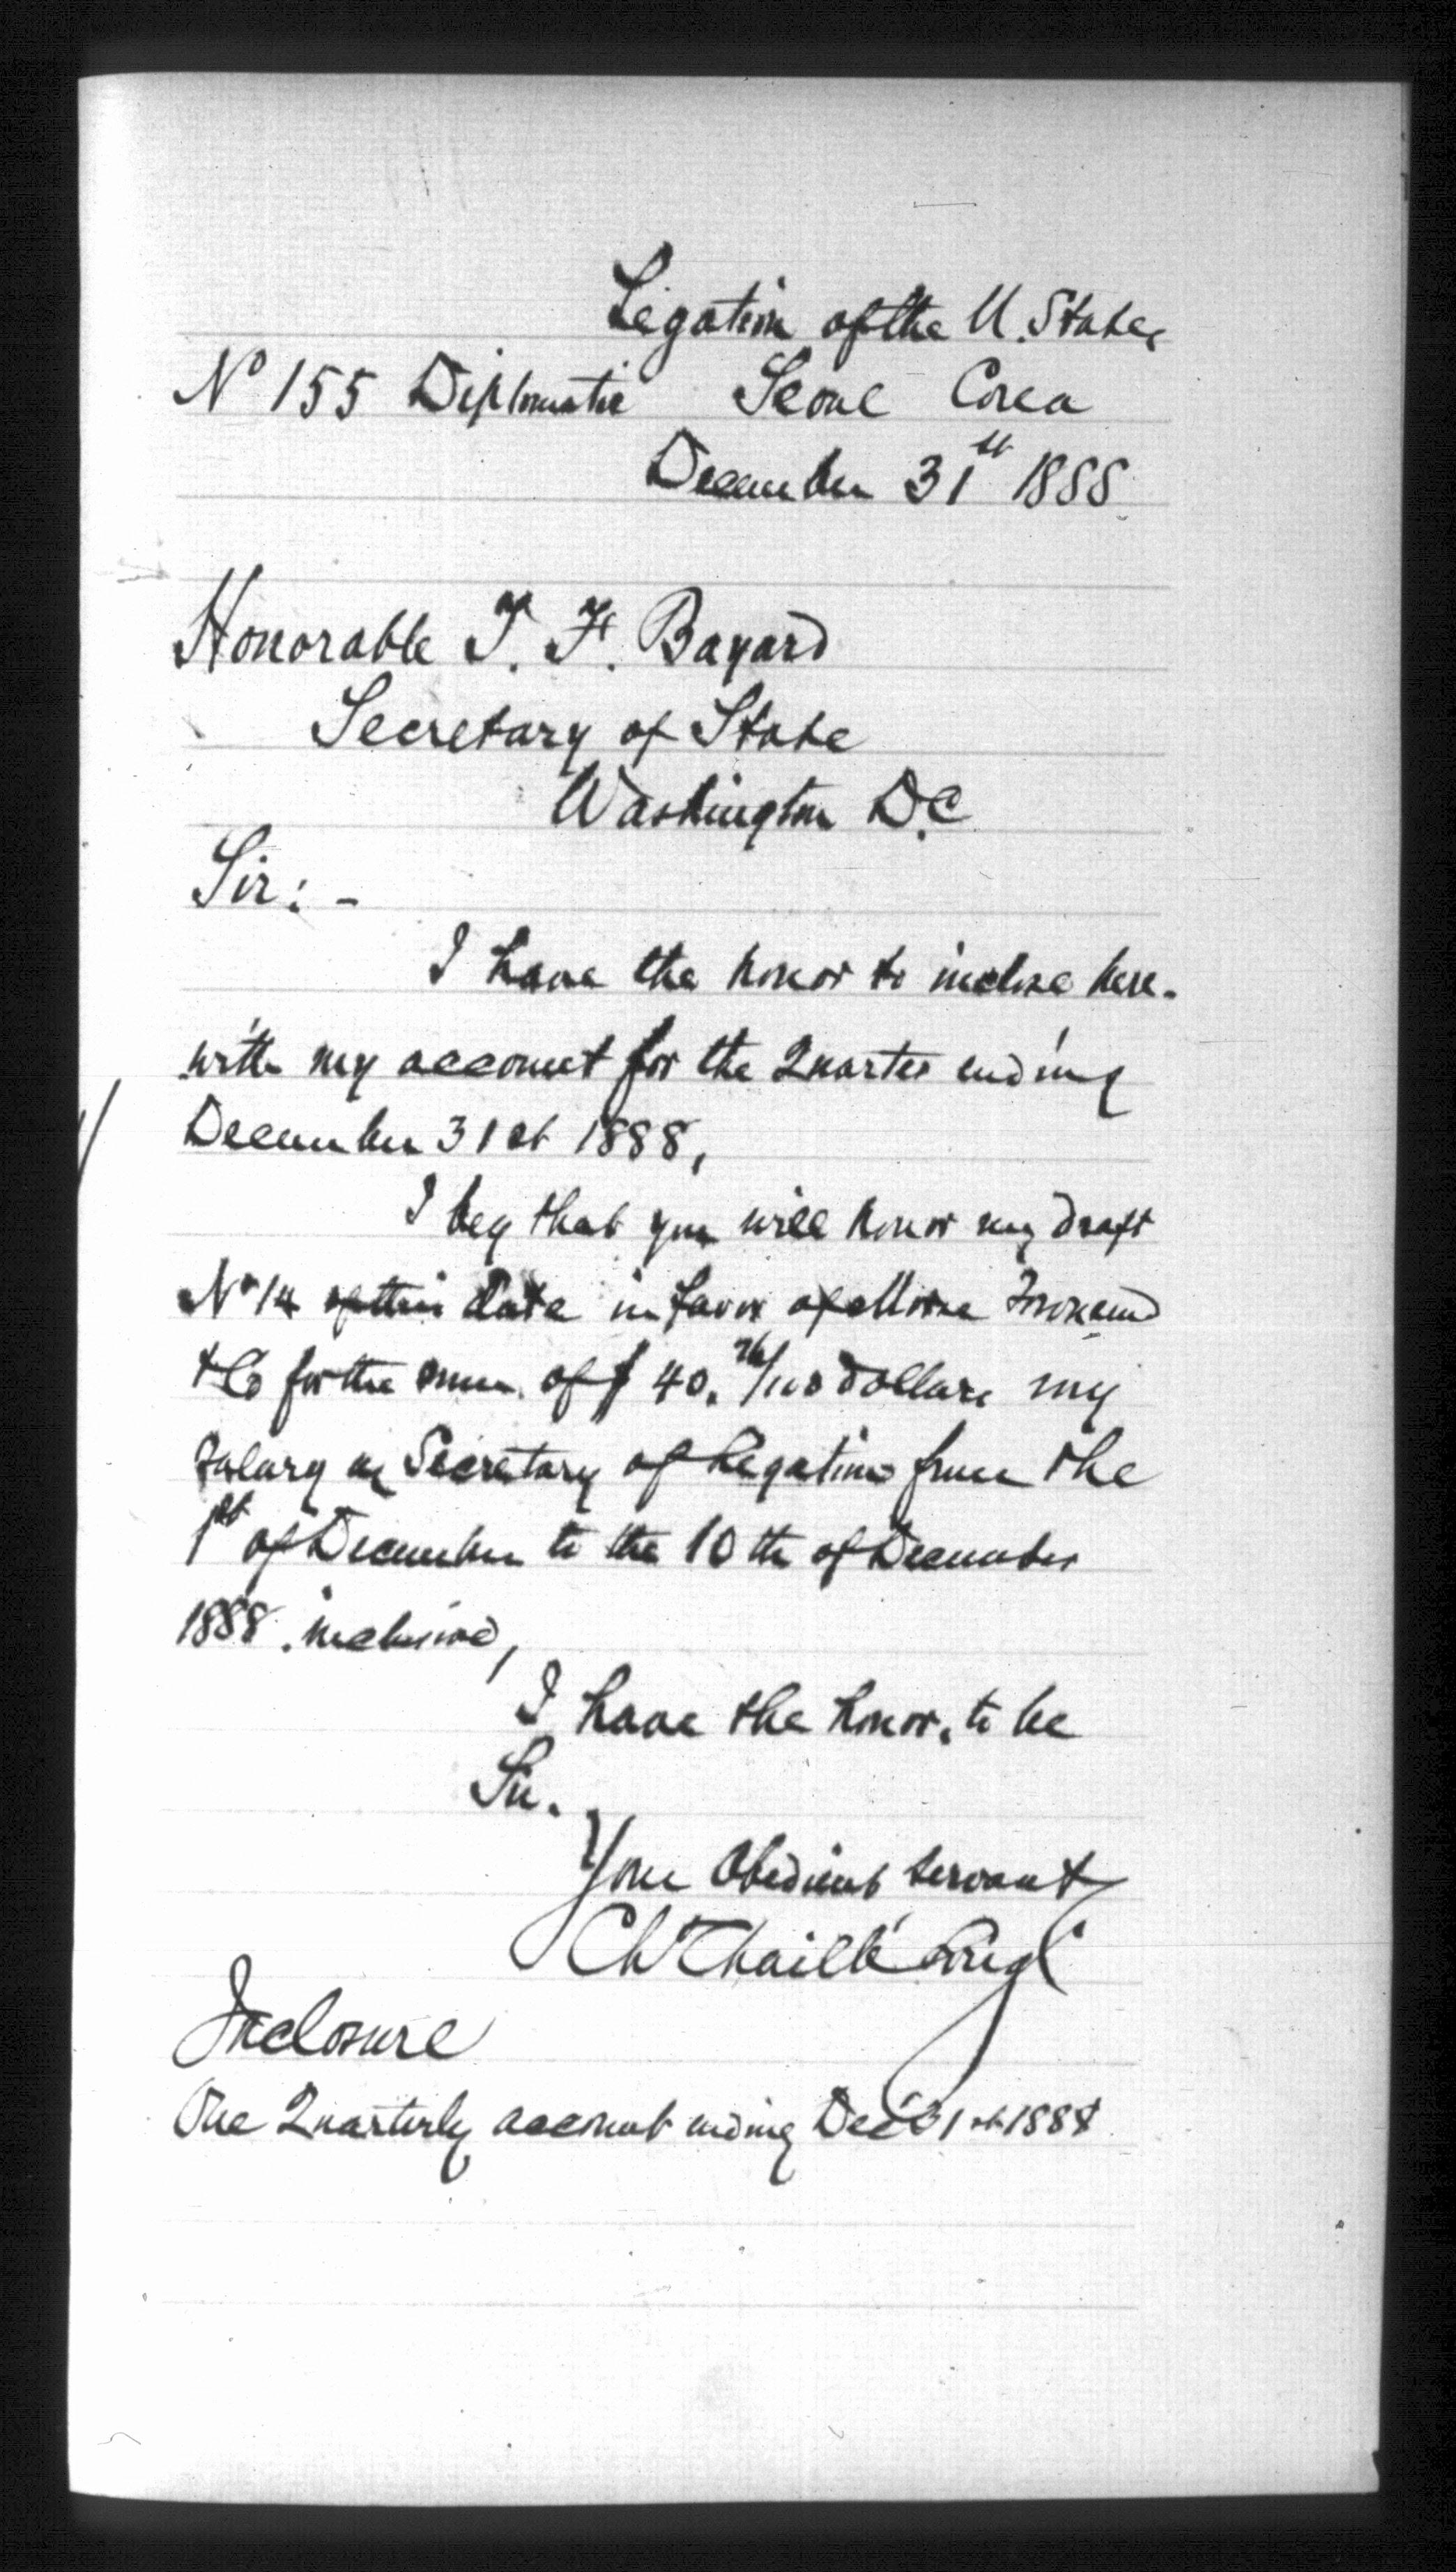 Legation of the U. States
No 155 Diplomatic Seoul Corea
December 31st 1888
Honorable T. F. Bayard
Secretary of State
Washington D.C
Sir: -
I have the honor to inclose here-
with my account for the Quarter ending
December 31st 1888,
I beg that you will honor my draft
No 14 of this date in favor of Morse Townsend
& Co for the sum of $ 40. /100 dollars my
salary as Secretary of Legation from the
1st of December to the 10th of December
1888. inclusive,
I have the honor, to be
Sir.
Your Obedient servant
Ch Chaillé Long
Inclosure
One Quarterly account ending Dec 31st 1888